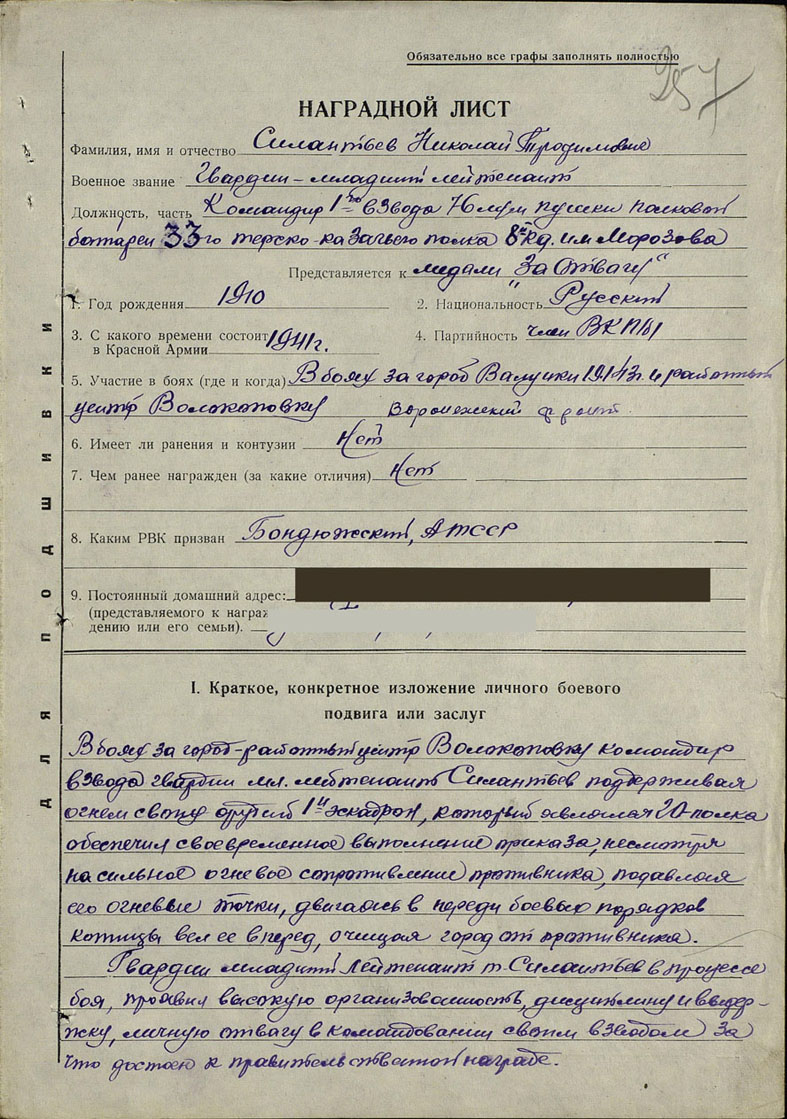 Обязательно все графы заполнять полностью
257
НАГРАДНОЙ ЛИСТ
Фамилия, имя и отчество Силантьев Николай Трофимович
Военное звание Гвардии – младший лейтенант
Должность, часть Командир 1го взвода 76 м/м пушки полковой
батареи 33го терско-казачьего полка 8й кд. им Морозова
Представляется к медали "За Отвагу"
1. Год рождения 1910 2. Национальность Русский
3. С какого времени состоит 1941г. 4. Партийность член ВКП/б/
в Красной Армии
5. Участие в боях (где и когда) В боях за город Валуйки 1943г. и районный
центр Волоконовку Воронежский фронт
6. Имеет ли ранения и контузии Нет
7. Чем ранее награжден (за какие отличия) Нет
8. Каким РВК призван Бондюжский, АТССР
9. Постоянный домашний адрес:
(представляемого к награж
дению или его семьи).
I. Краткое, конкретное изложение личного боевого
подвига или заслуг
В боях за город-районный центр Волоконовку командир
взвода гвардии мл. лейтенант Силантьев поддерживая
огнем своих орудий 1й эскадрон, который являлся ГО полка
обеспечил своевременное выполнение приказа, несмотря
на сильное огневое сопротивление противника, подавляя
его огневые точки, двигаясь в переди боевых порядков
конницы вел ее вперед, очищая город от противника.
Гвардии младший Лейтенант т. Силантьев в процессе
боя, проявил высокую организованность, дисциплину и выдер-
жку, личную отвагу в командовании своим взводом за
что достоен к правительственной награде.
ДЛЯ ПОДШИВКИ